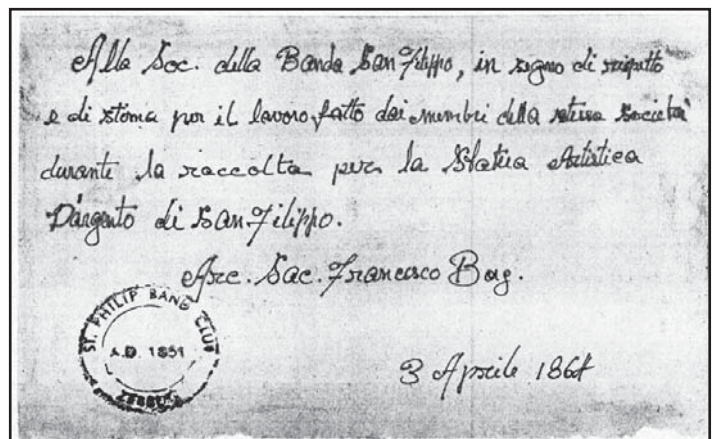 Alla Soc. della Banda San Filippo, in segno di rispetto
e di stima per il lavoro fatto dai membri della stessa Società
durante la raccolta per la Statua Artistica
D'argento di San Filippo.
Arc. Sac. Francesco Borg.
ST. PHILIP BAND CLUB
A.D. 1851
ZEBBUG
3 Aprile 1864